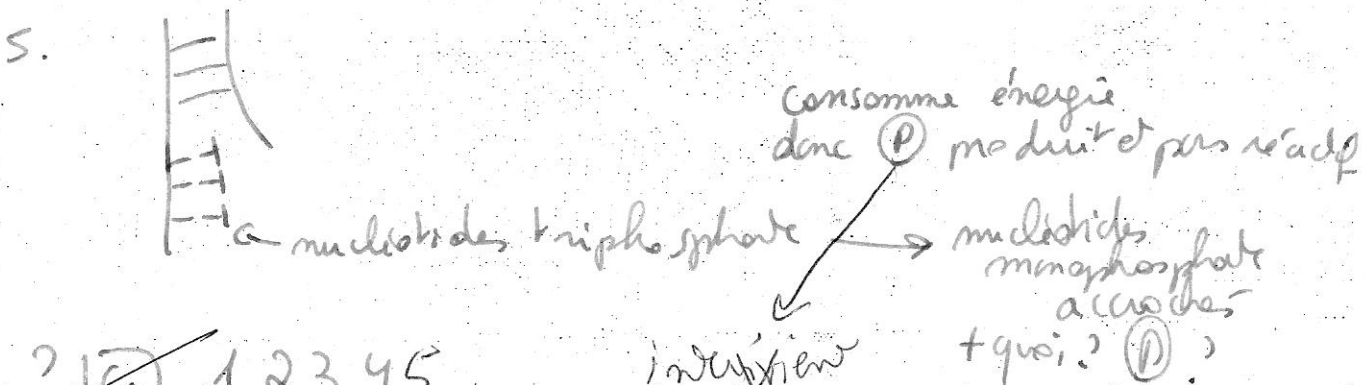 5.
consomme énergie
donc P produit et pas réactif
nucléotides triphosphate → nucléotides
monophosphate
accrochés
+ quoi ? P ?
? 1 2 3 4 5